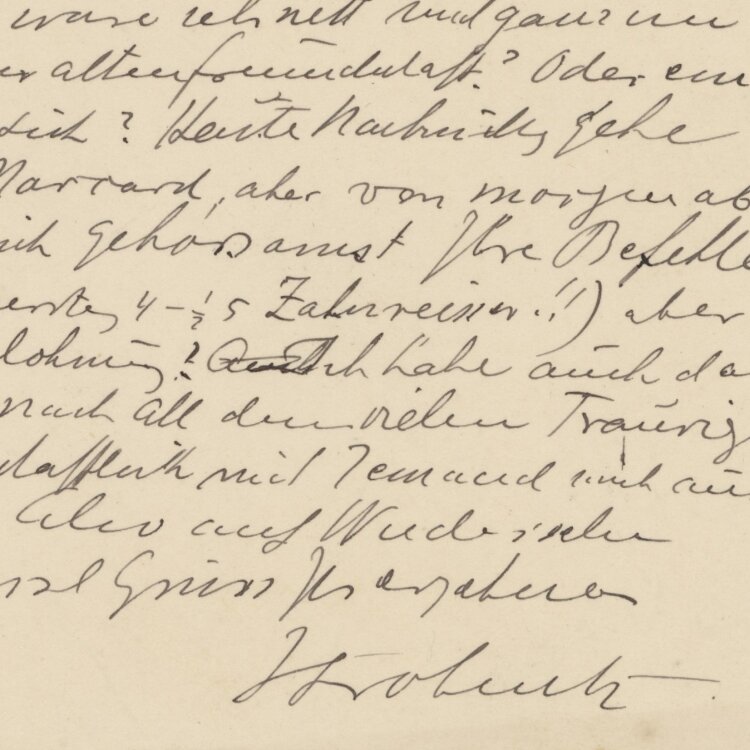 wäre sehr nett und ganz im
er alten Freundschaft? Oder ein
sich? Heute Nachmittag gehe
Marcard, aber von morgen ab
ich gehorsamst Ihre Befehle
4 - ½ 5 Zahnreisser!!) aber
lohnung? Ich habe auch da
nach all dem vielen Traurig
mit Jemand mich au
Also auf Wiedersehn
Gruss Ihr ergebener